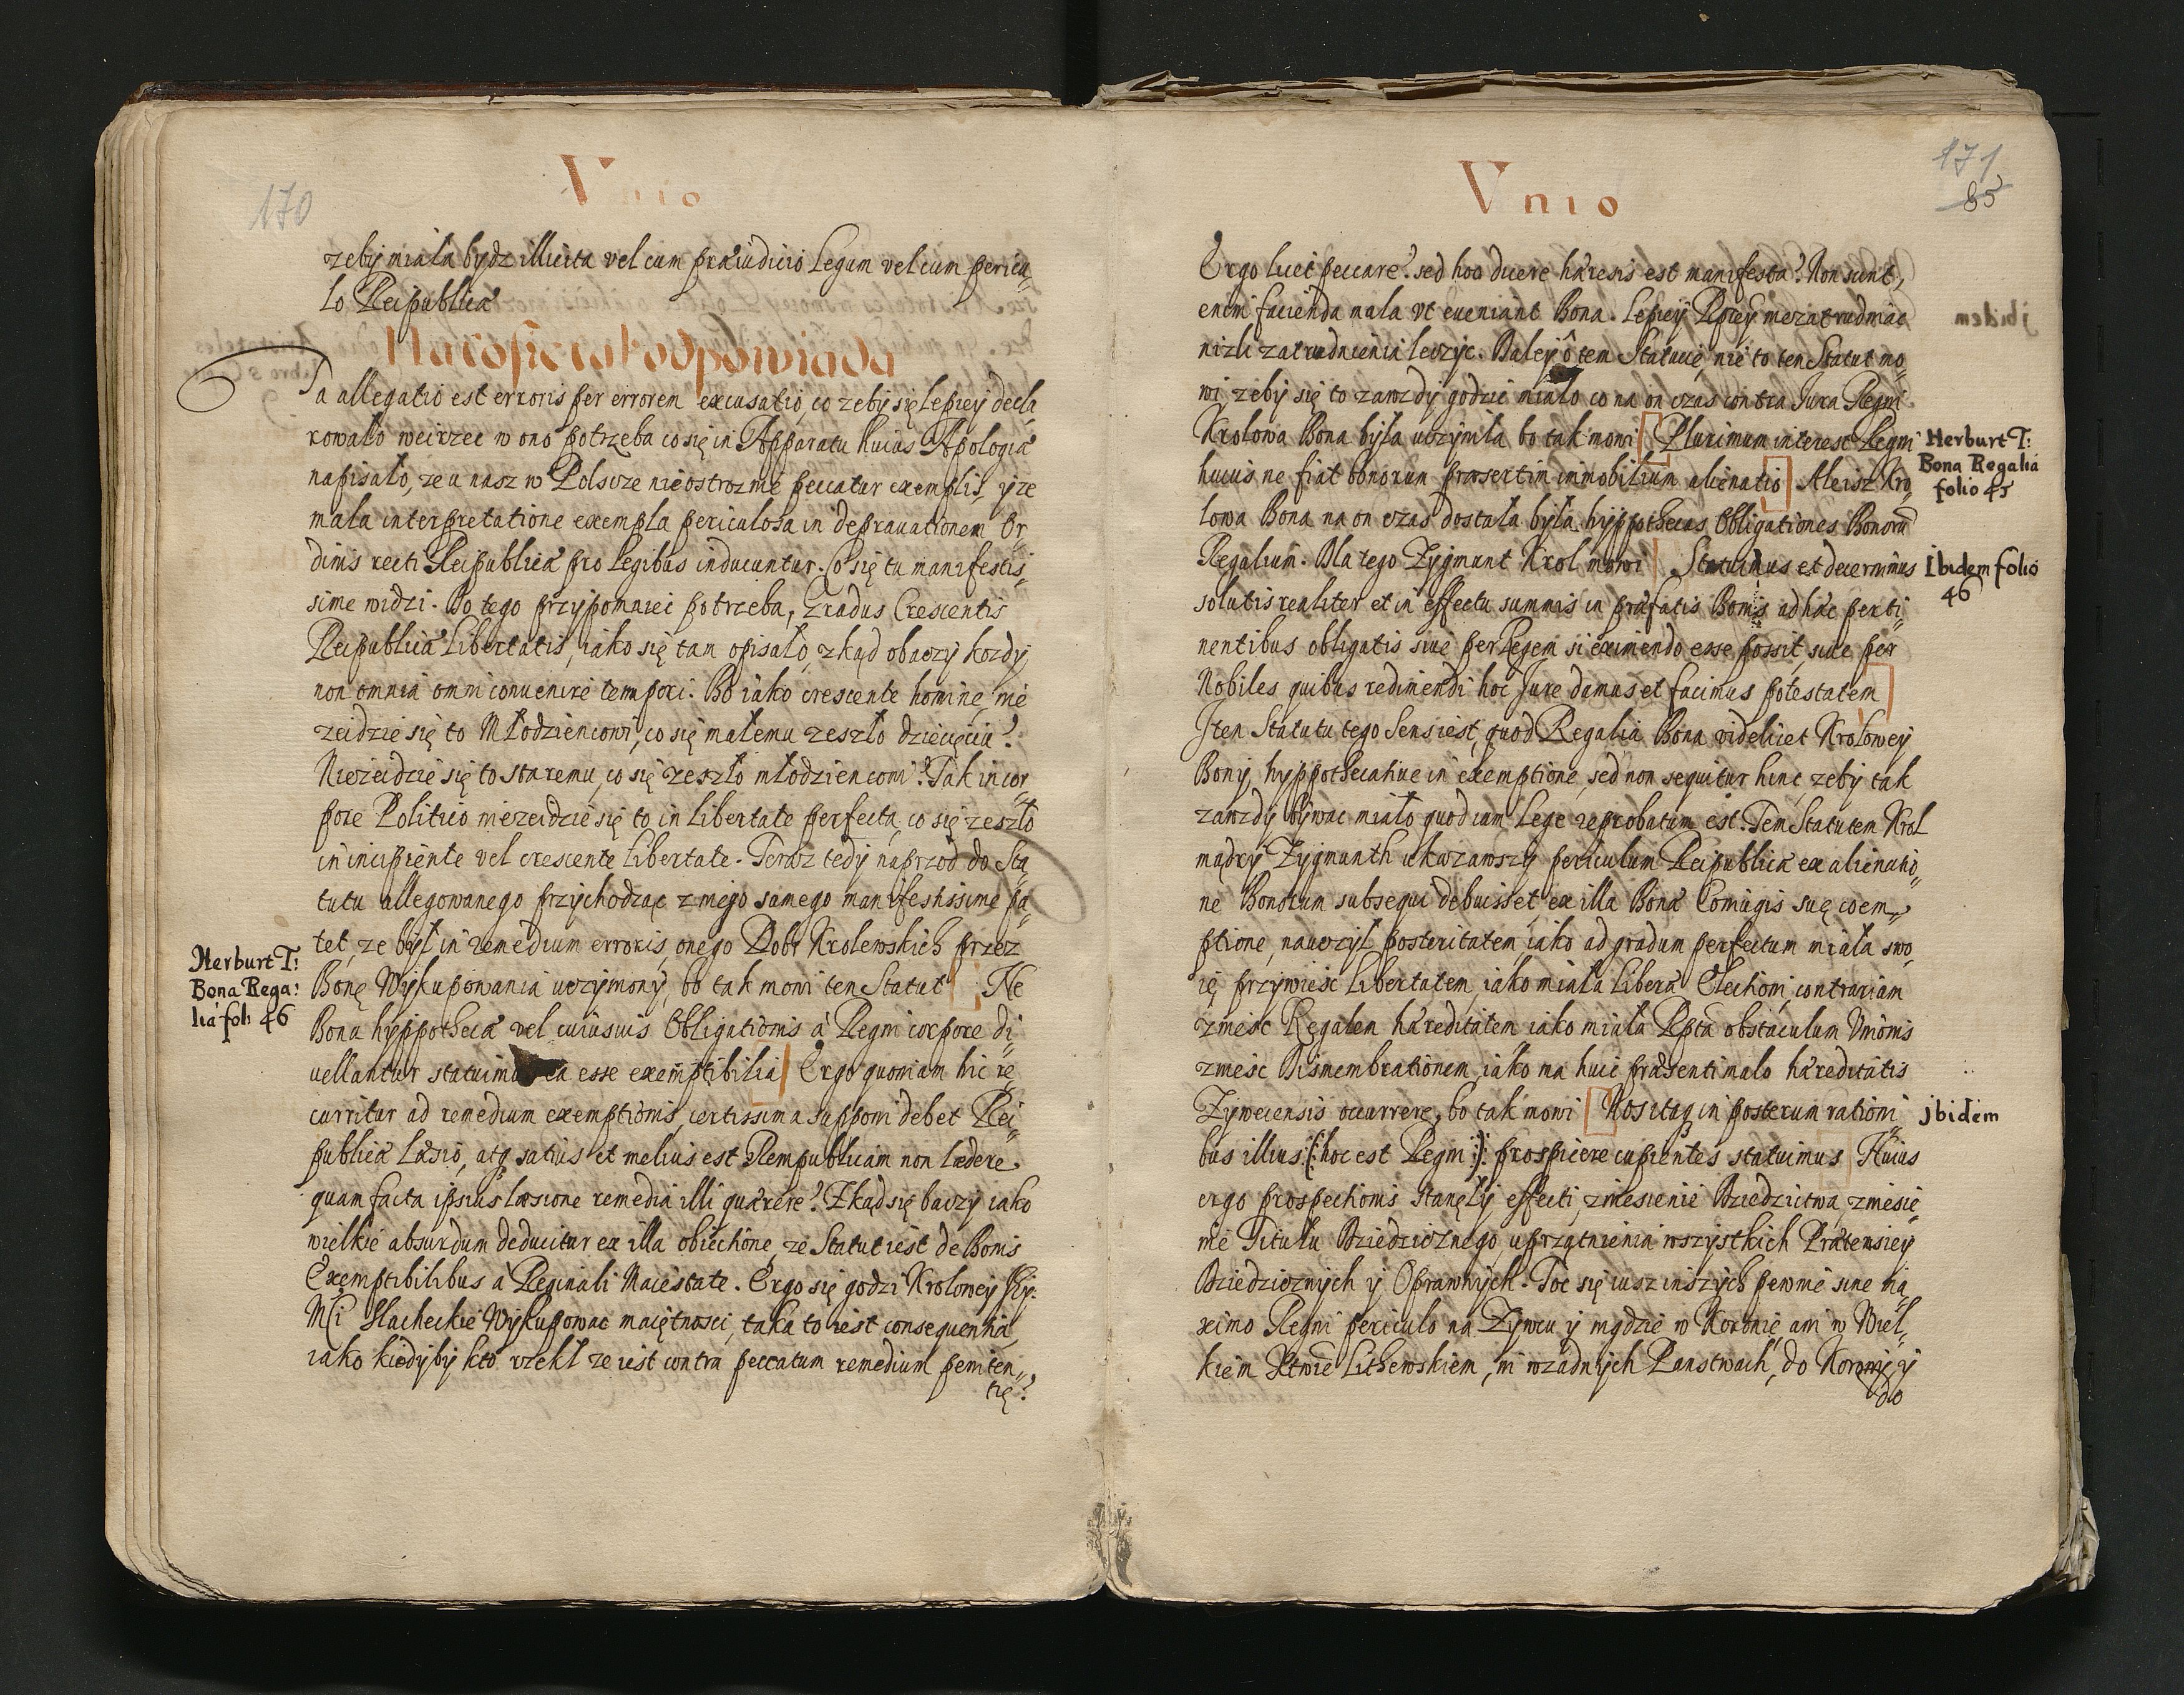 170
Vnio
zeby miala bydz illicita vel cum præiudicio Legum vel cum pericu„
lo Reipublicæ
Na to się tak odpowiada
Ta allegatio est erroris per errorem excusatio, co zeby się lepiey decla
rowało weirzec w ono potrzeba co się in Apparatu huius Apologiæ
napisało, ze u nasz w Polscze nieostroznie peccatur exemplis, y ze
mala interpretatione exempla periculosa in deprauationem Or„
dinis recti Reipublicæ pro Legibus inducuntur. Co się tu manifestis„
sime widzi. Do tego przypomniec potrzeba, Gradus Crescentis
Reipublicæ Libertatis, iako się tam opisało, zkąd obaczy kozdy
non omnia omni conuenire tempori. Bo iako crescente homine, nie
zeidzie się to Młodziencowi, co się małemu zeszło dziecięciu?
Niezeidzie się to staremu, co się zeszło młodziencowi? Tak in cor„
pore Politico niezeidzie się to in libertate perfecta, co się zeszło
in incipiente vel crescente libertate. Teraz tedy naprzod do Sta„
tutu allegowanego przychodząc z niego samego manifestissime pa„
tet, ze był in remedium erroris, onego Dobr Krolewskich przez
Bonę Wykupowania uczyniony, bo tak mowi ten Statut Ne
Herburt T:
Bona Rega:
lia fol: 46
Bona hyppothecæ vel cuiusuis Obligationis à Regni corpore di„
uellantur statuimus ea esse exemptibilia Ergo quoniam hic re„
curritur ad remedium exemptionis, certissima supponi debet Rei„
publicæ Læsio, atq satius et melius est Rempublicam non lædere
quam facta ipsius læsione remedia illi quærere? Zkąd się baczy iako
wielkie absurdum deducitur ex illa obiectione, ze Statut iest de Bonis
Exemptibilibus à Reginali Maiestate. Ergo się godzi Krolowey
Mći Slacheckie Wykupowac maiętnosci, taka to iest consequentia,
iako kiedyby kto rzekł ze iest contra peccatum remedium peniten„
tię?
171
85
Vnio
Ergo licet peccare? sed hoc dicere hæresis est manifesta? Non sunt,
enim facienda mala vt eueniant Bona. Lepiey Rptcy niezatrudniac
nizli zatrudnienia leczyc. Daley ô tem Statucie, nie to ten Statut mo„
wi, zeby się to zawzdy godzic miało co na on czas contra Jura Regni
Krolowa Bona była uczyniła bo tak mowi Plurimum interest Regni
Herburt T:
Bona Regalia
folio 45
huius ne fiat bonorum præsertim immobilium alienatio Aleisz Kro„
lowa Bona na on czas dostała była hyppothecas Obligationes Bonorũ
Regalium. Dla tego Zygmunt Krol mowi Statuimus et decernimus
Ibidem folio
46
solutis realiter et in effectu summis in præfatis Bonis ad hæc perti„
nentibus obligatis siue per Regem si eximendo esse possit, siue per
Nobiles quibus redimendi hoc Jure damus et facimus potestatem
Jten Statutu tego Sens iest, quod Regalia Bona videlicet Krolowey
Bony, hyppothecatiue in exemptione, sed non sequitur hinc, zeby tak
zawzdy bywac miało quod iam Lege reprobatum est. Tem Statutem Krol
mądry Zygmunth ukazawszy periculum Reipublicæ ex alienatio„
ne Bonorum subsequi debuisset, ex illa Bonæ Coniugis suę coem„
ptione, nauczył posteritatem, iako ad gradum perfectum miała swo„
ię przywiesc libertatem, iako miała liberæ Electioni, contrariam
zniesc Regalem hæreditatem iako miała Rptã obstaculum Vnionis
zniesc Dismembrationem, iako ma huic præsenti malo hæreditatis
Zyweciensis occurrere, bo tak mowi Nos itaq in posterum rationi„
jbidem
bus illius (: hoc est Regni :) prospicere cupientes statuimus Huius
ergo prospectionis stanęły effecti, zniesienie Dziedzictwa, zniesie„
nie Titułu Dziedzicznego, uprzątnienia wszystkich Prætensiey
Dziedzicznych y Oprawnych. Toc się iusz inszych pewnie sine ma„
ximo Regni periculo na Zywcu y nigdzie w Koronie ani w Wiel„
kiem Xtwie Lithewskiem, ni wzadnych Panstwach, do Korony y
do